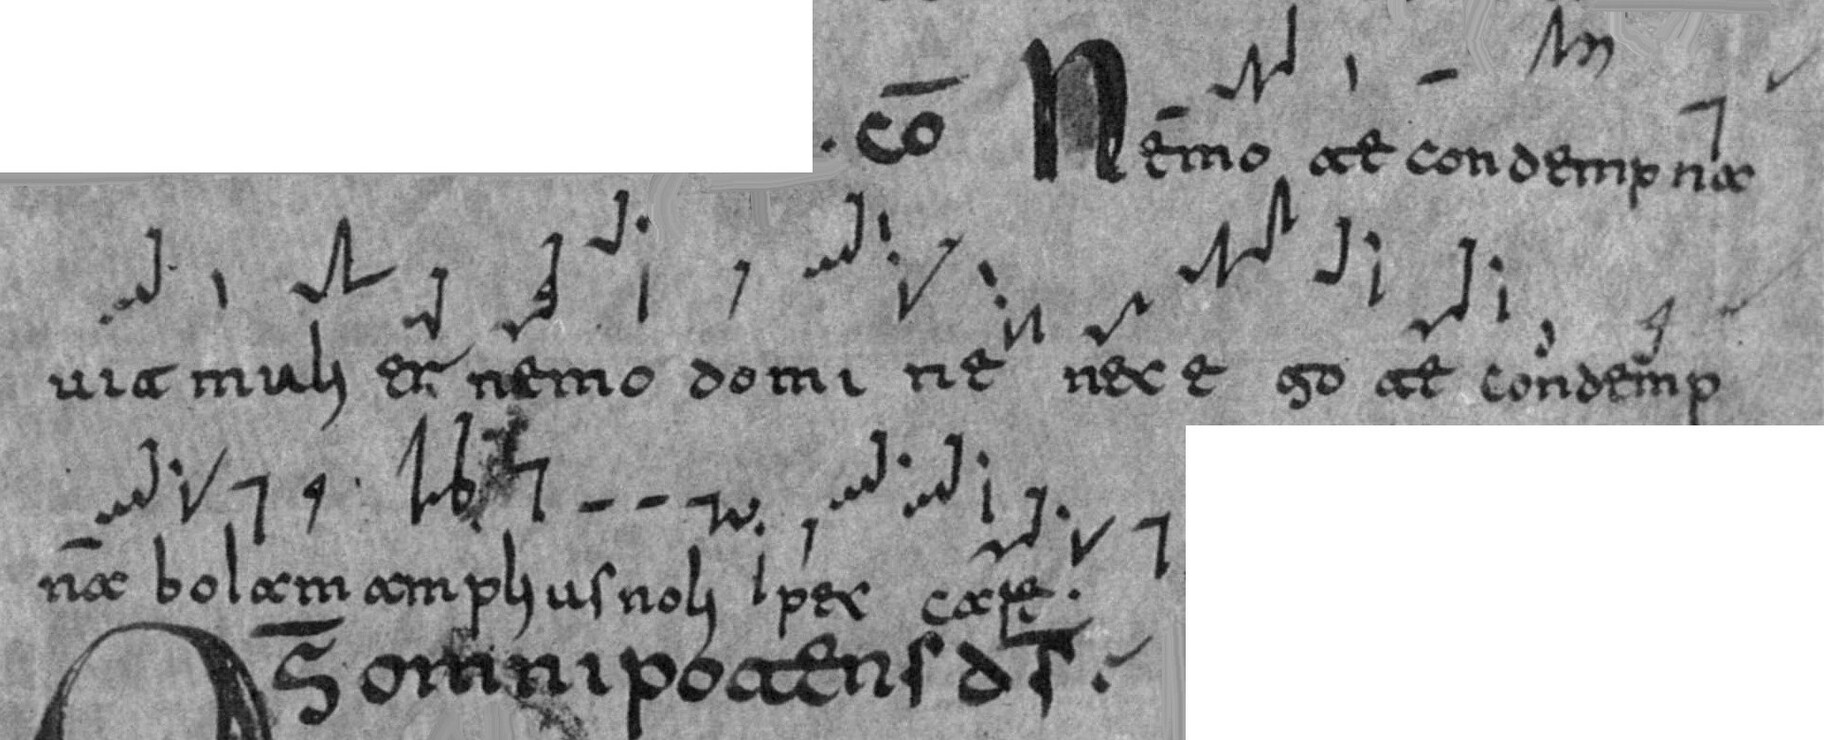 . cō Nemo te condempna
uit muli er nemo domi ne nec e go te condemp
nabo lam ampli us noli peccare.
Os omnipotens ds.